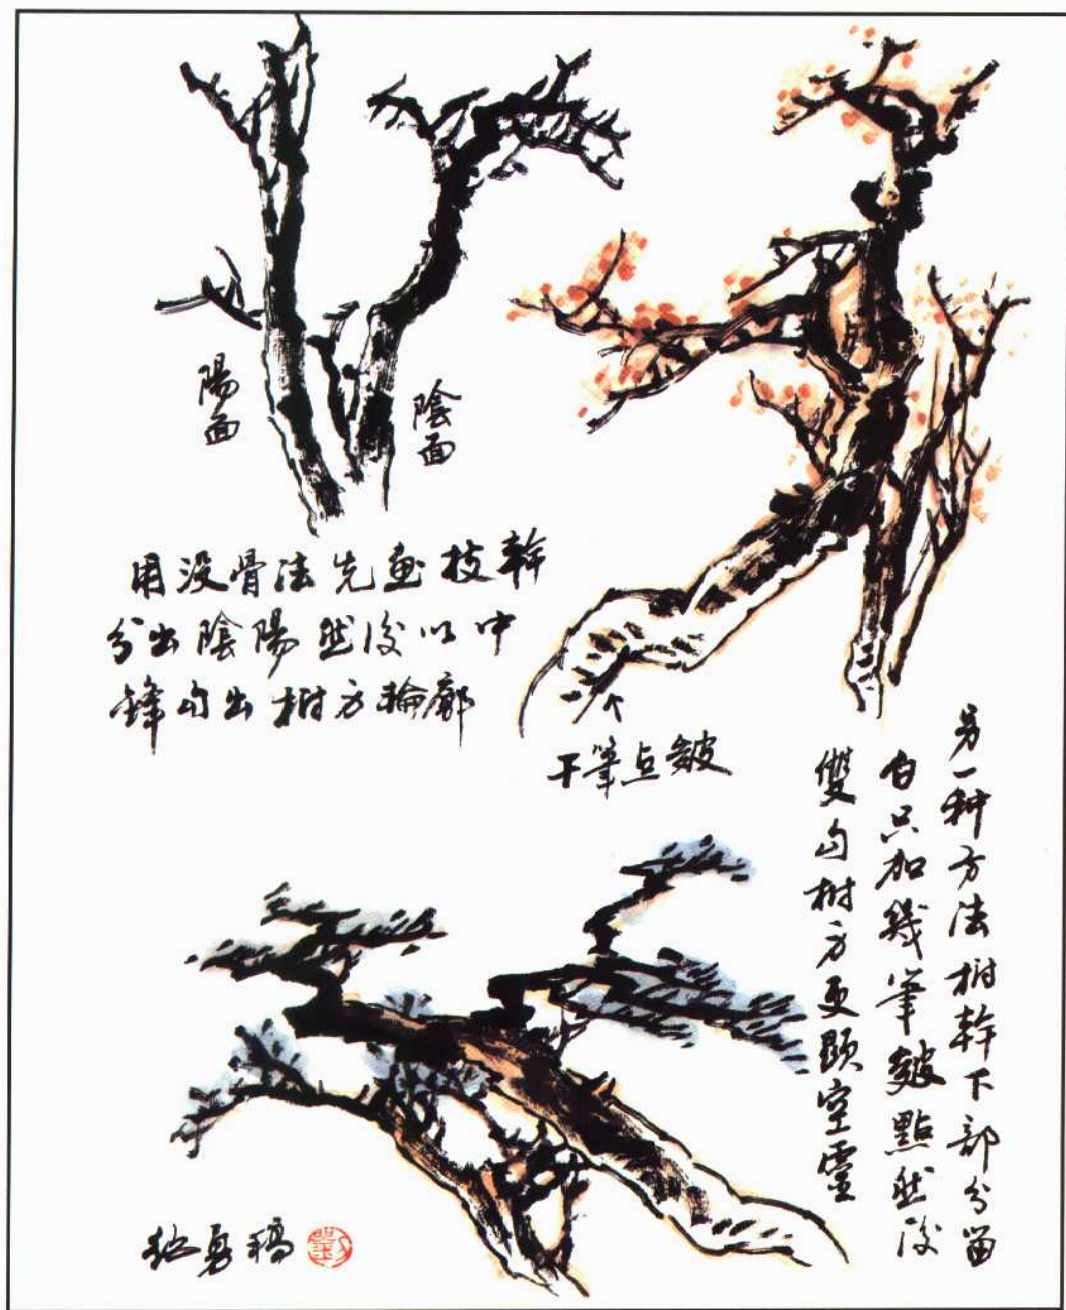 陽面
陰面
用没骨法先画枝幹
分出陰陽然後以中
鋒勾出樹方輪廓
干筆点皴
另一种方法樹幹下部分留
白只加幾筆皴點然後
雙勾樹方更顯空靈
勇稿
劉